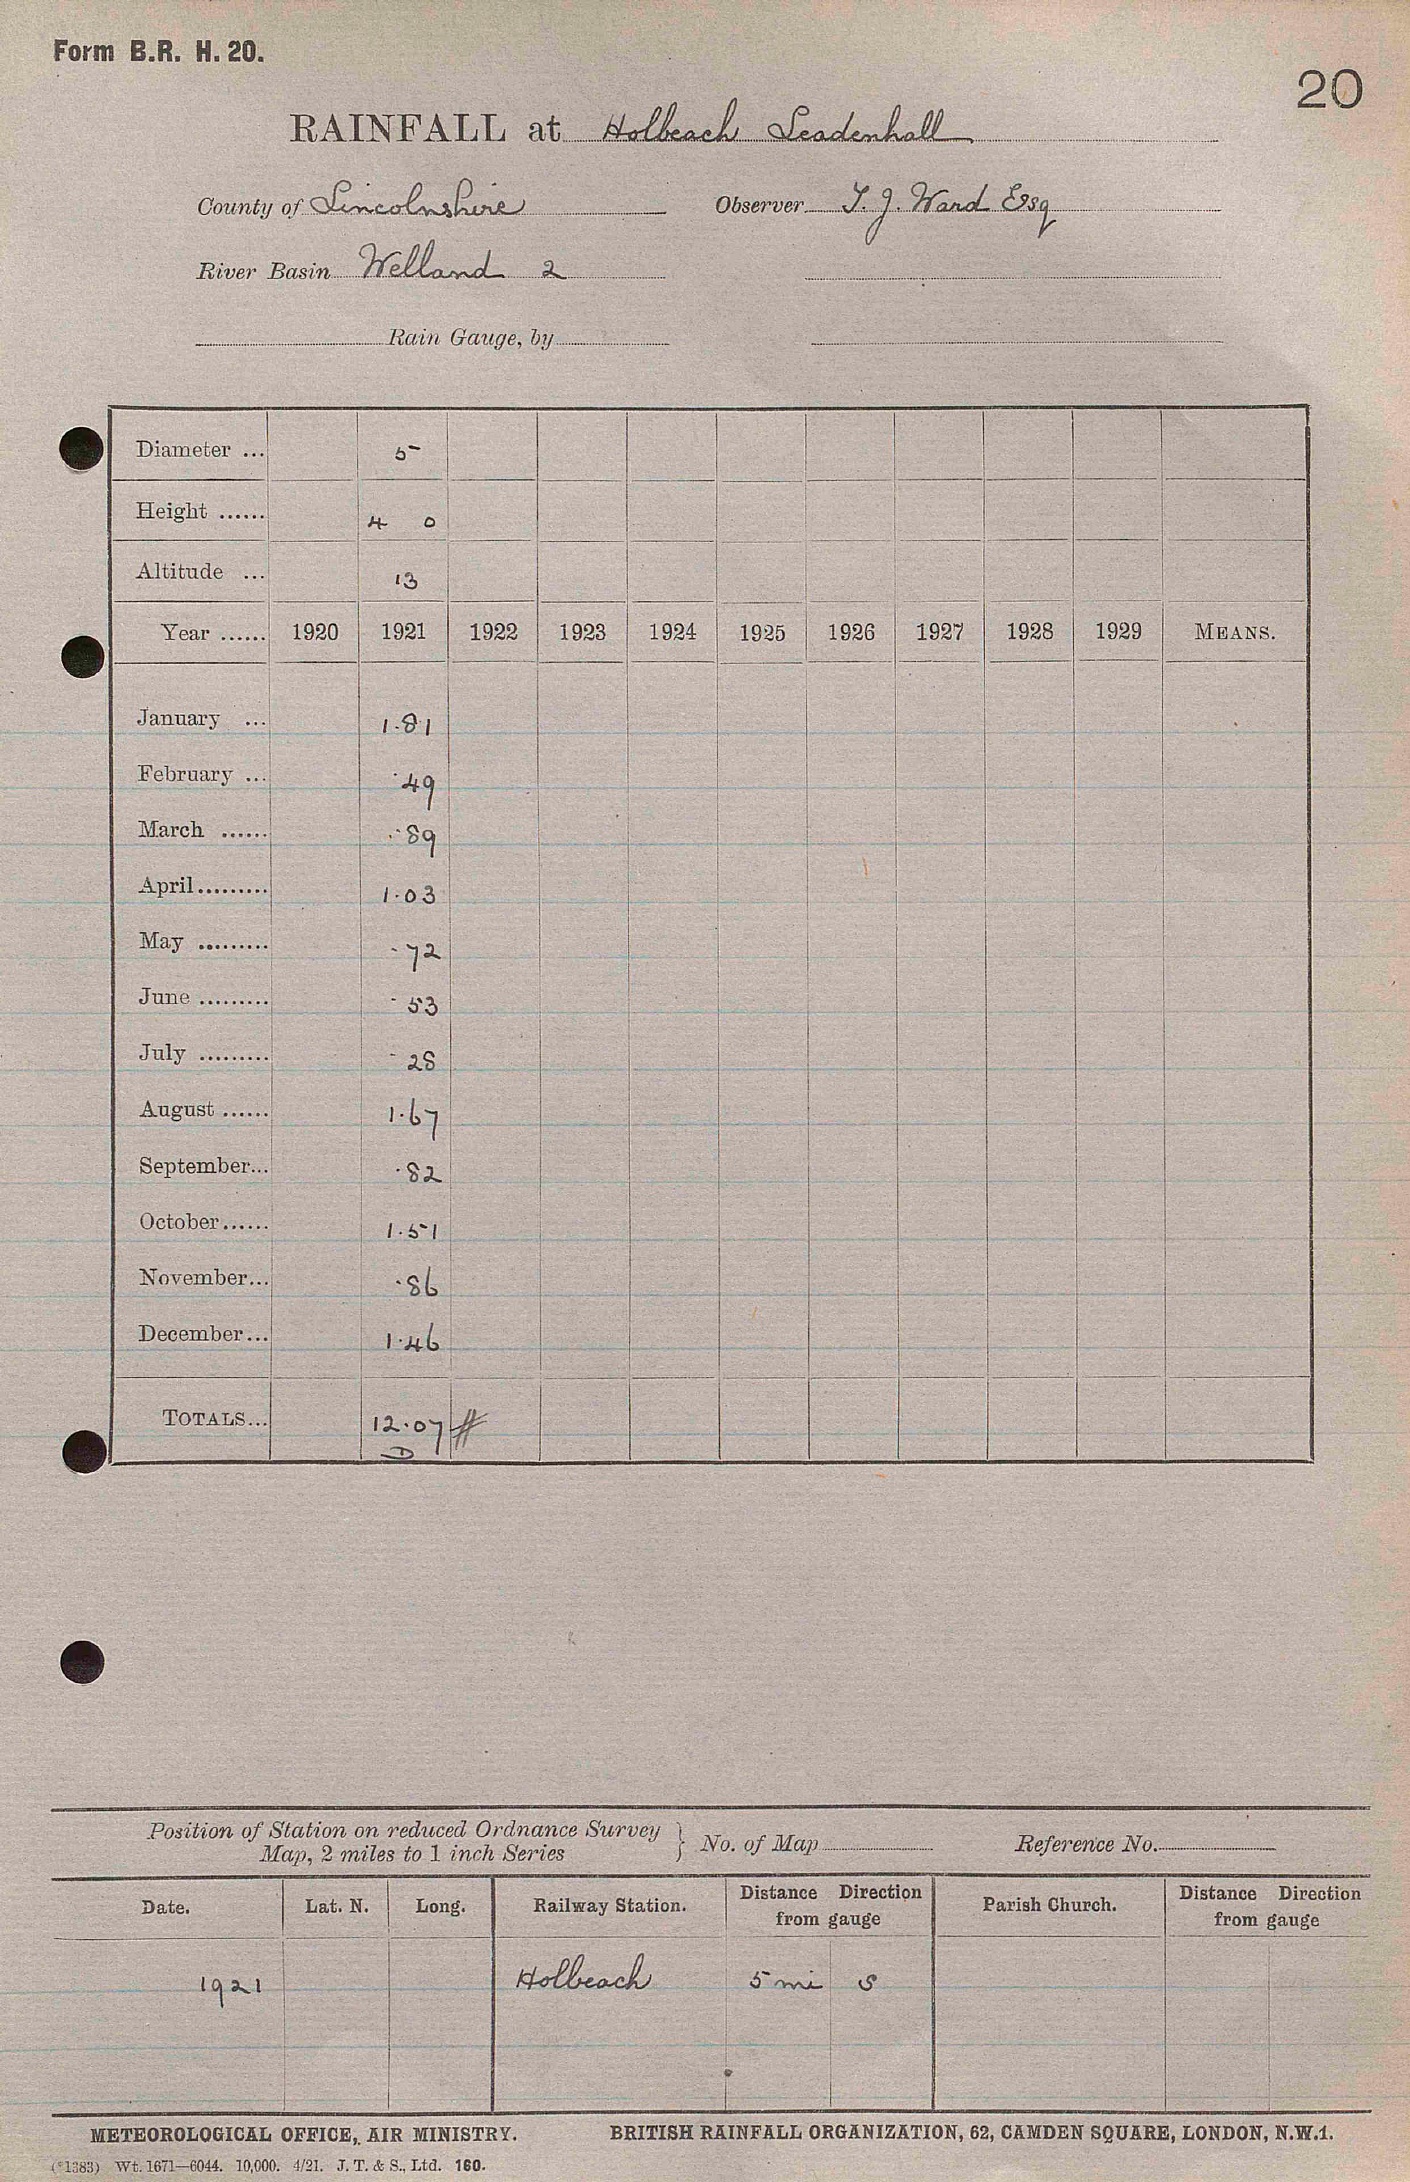 Form B.R. H. 20.
20
RAINFALL at Holbeach Leadenhall
County of Lincolnshire Observer T. J. Ward Esq
River Basin Welland 2
Rain Gauge, by
Diameter ... 5
Height ...... 4 0
Altitude ... 13
Year ...... 1920 1921 1922 1923 1924 1925 1926 1927 1928 1929 MEANS.
January ... 1.81
February ... .49
March ...... .89
April......... 1.03
May ......... .72
June ......... .53
July ......... .28
August ...... 1.67
September... .82
October...... 1.51
November... .86
December... 1.46
TOTALS... 12.07 #
D
Position of Station on reduced Ordnance Survey
Map, 2 miles to 1 inch Series } No. of Map Reference No.
Date. Lat. N. Long. Railway Station. Distance Direction from gauge Parish Church. Distance Direction from gauge
1921 Holbeach 5 mi S
METEOROLOGICAL OFFICE, AIR MINISTRY. BRITISH RAINFALL ORGANIZATION, 62, CAMDEN SQUARE, LONDON, N.W.1.
(*1383) Wt. 1671—6044. 10,000. 4/21. J. T. & S., Ltd. 160.